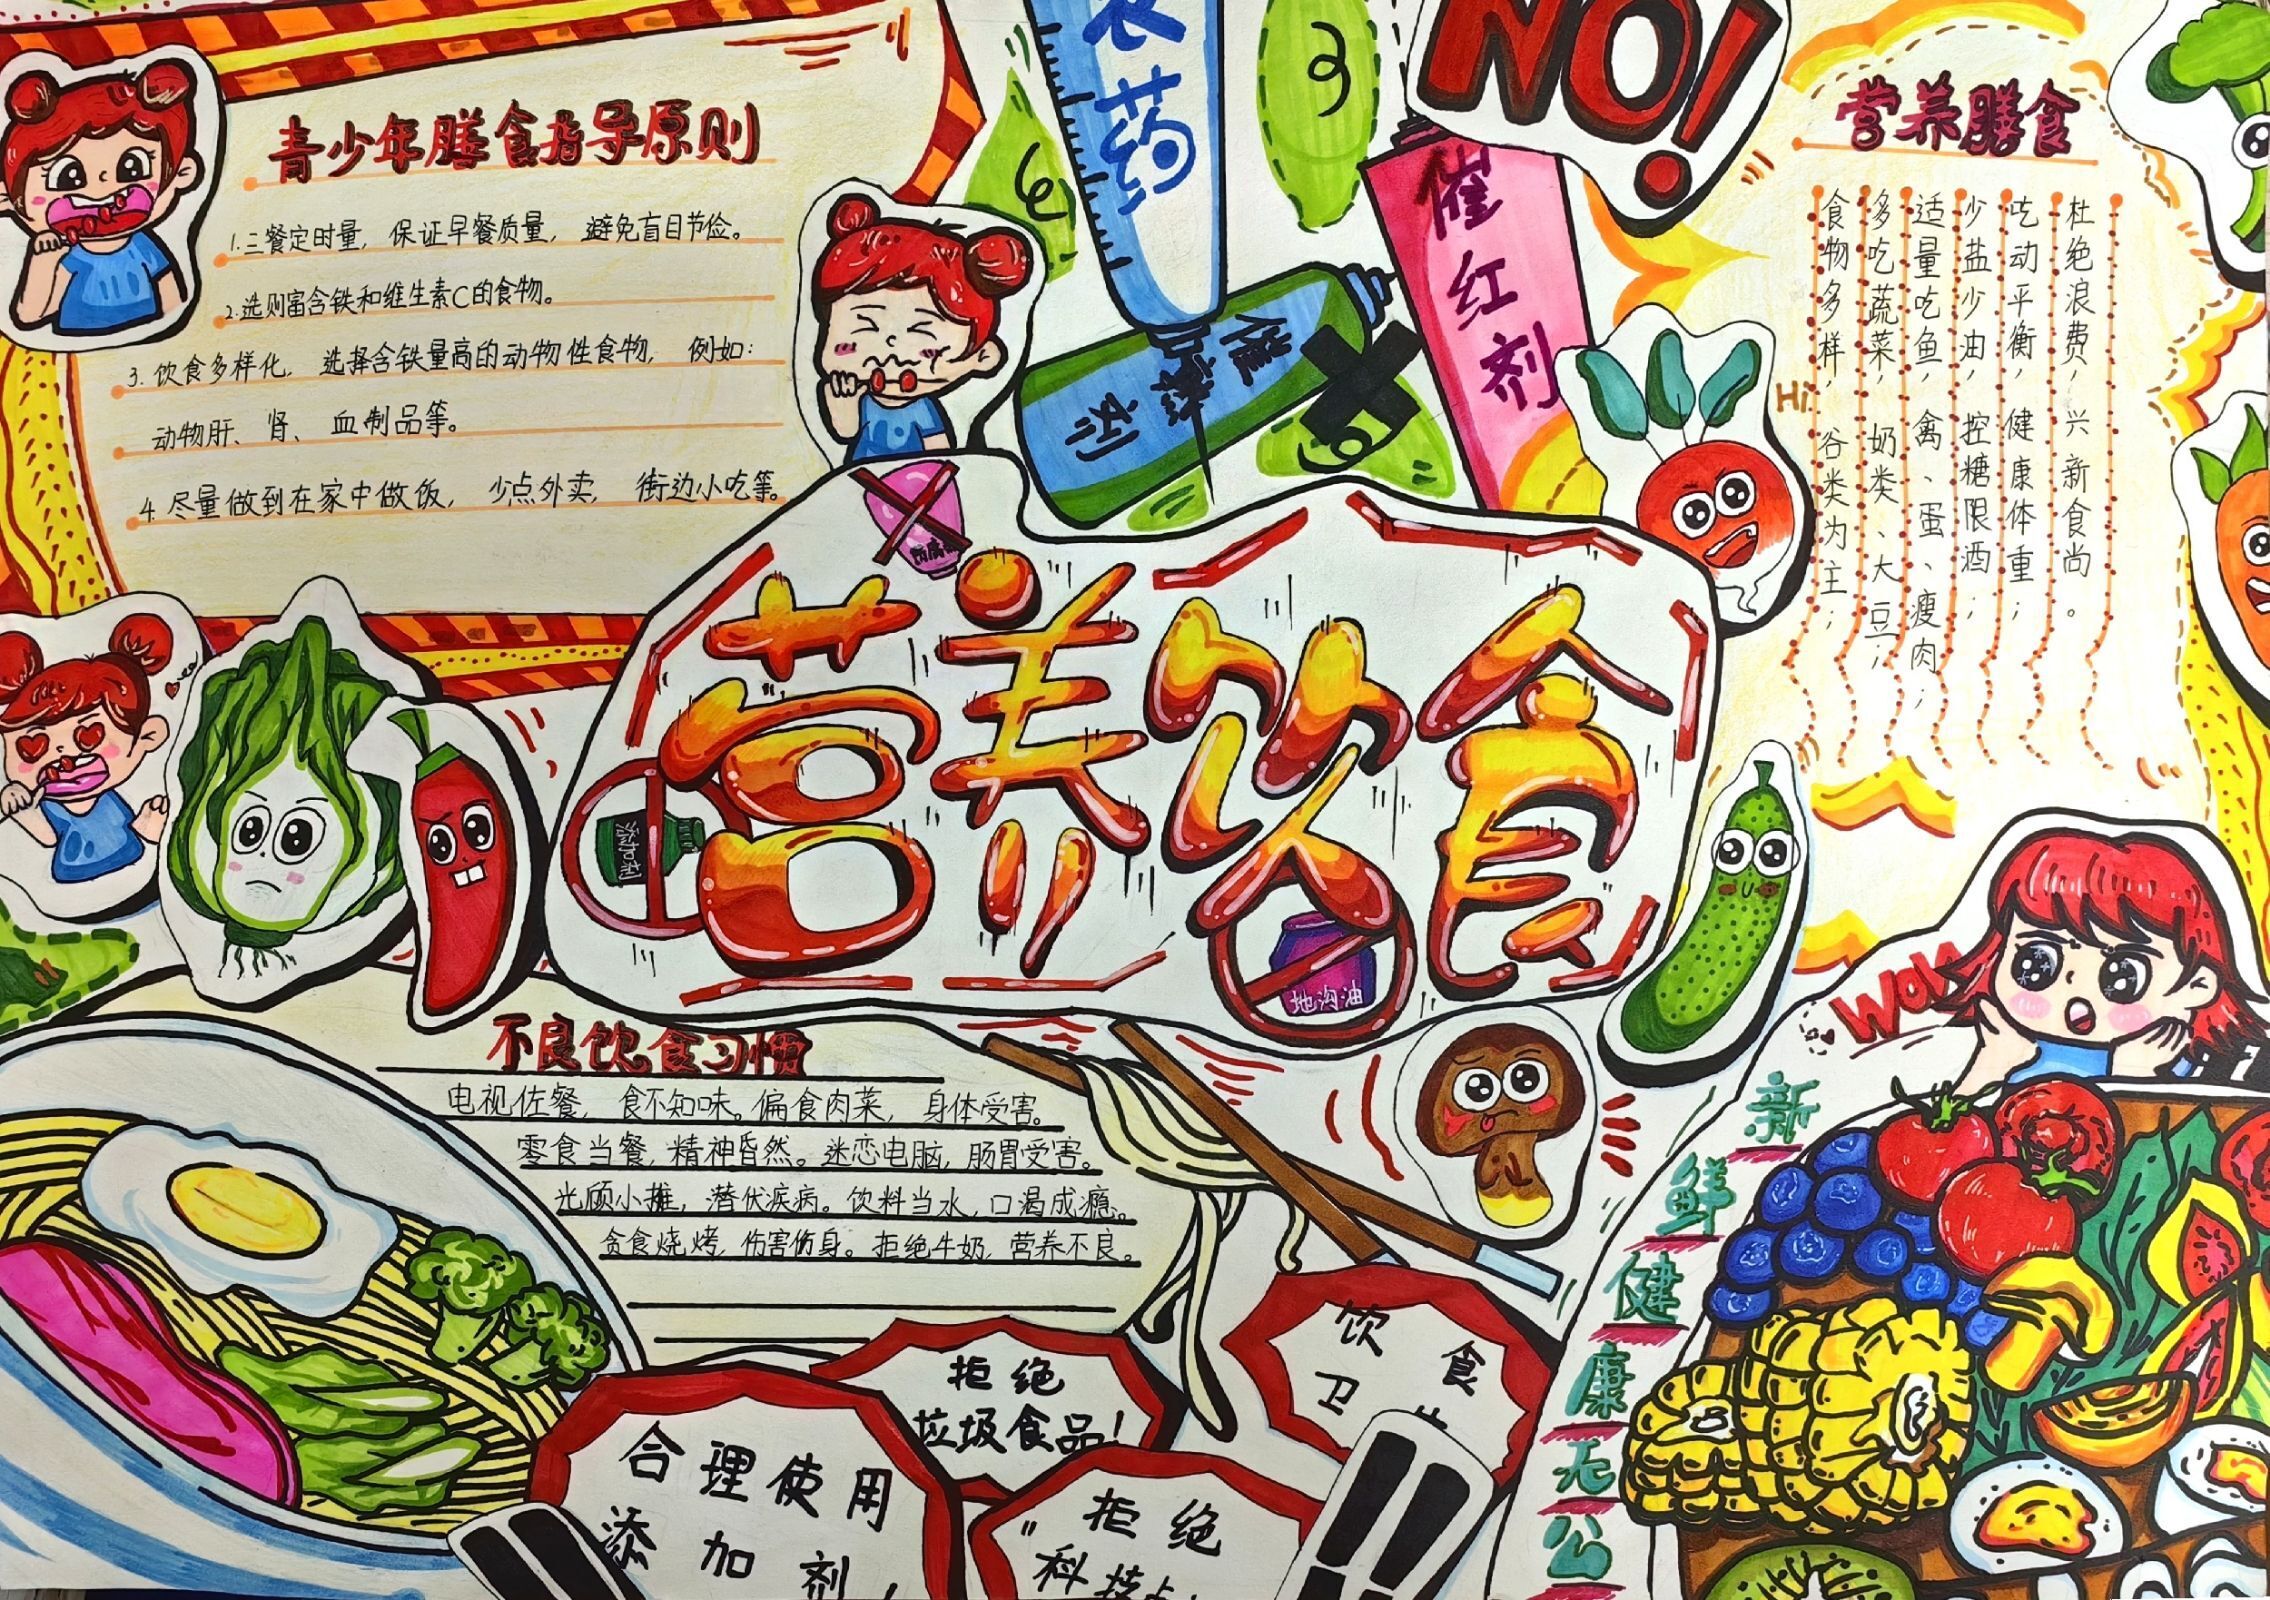 青少年膳食指导原则
1.三餐定时量，保证早餐质量，避免盲目节俭。
2.选则富含铁和维生素C的食物。
3.饮食多样化，选择含铁量高的动物性食物，例如：
动物肝、肾、血制品等。
4.尽量做到在家中做饭，少点外卖，街边小吃等。
农药
NO!
催红剂
剂
催
营养膳食
食物多样，谷类为主；
多吃蔬菜，奶类、大豆；
适量吃鱼，禽、蛋、瘦肉；
少盐少油，控糖限酒；
吃动平衡，健康体重；
杜绝浪费，兴新食尚。
Hi
营养饮食
添加剂
地沟油
WoW
不良饮食习惯
电视佐餐，食不知味。偏食肉菜，身体受害。
零食当餐，精神昏然。迷恋电脑，肠胃受害。
光顾小摊，潜伏疾病。饮料当水，口渴成瘾。
贪食烧烤，伤害伤身。拒绝牛奶，营养不良。
拒绝
垃圾食品！
合理使用
添加剂！
"拒绝
科技
饮食
卫
新鲜健康无公